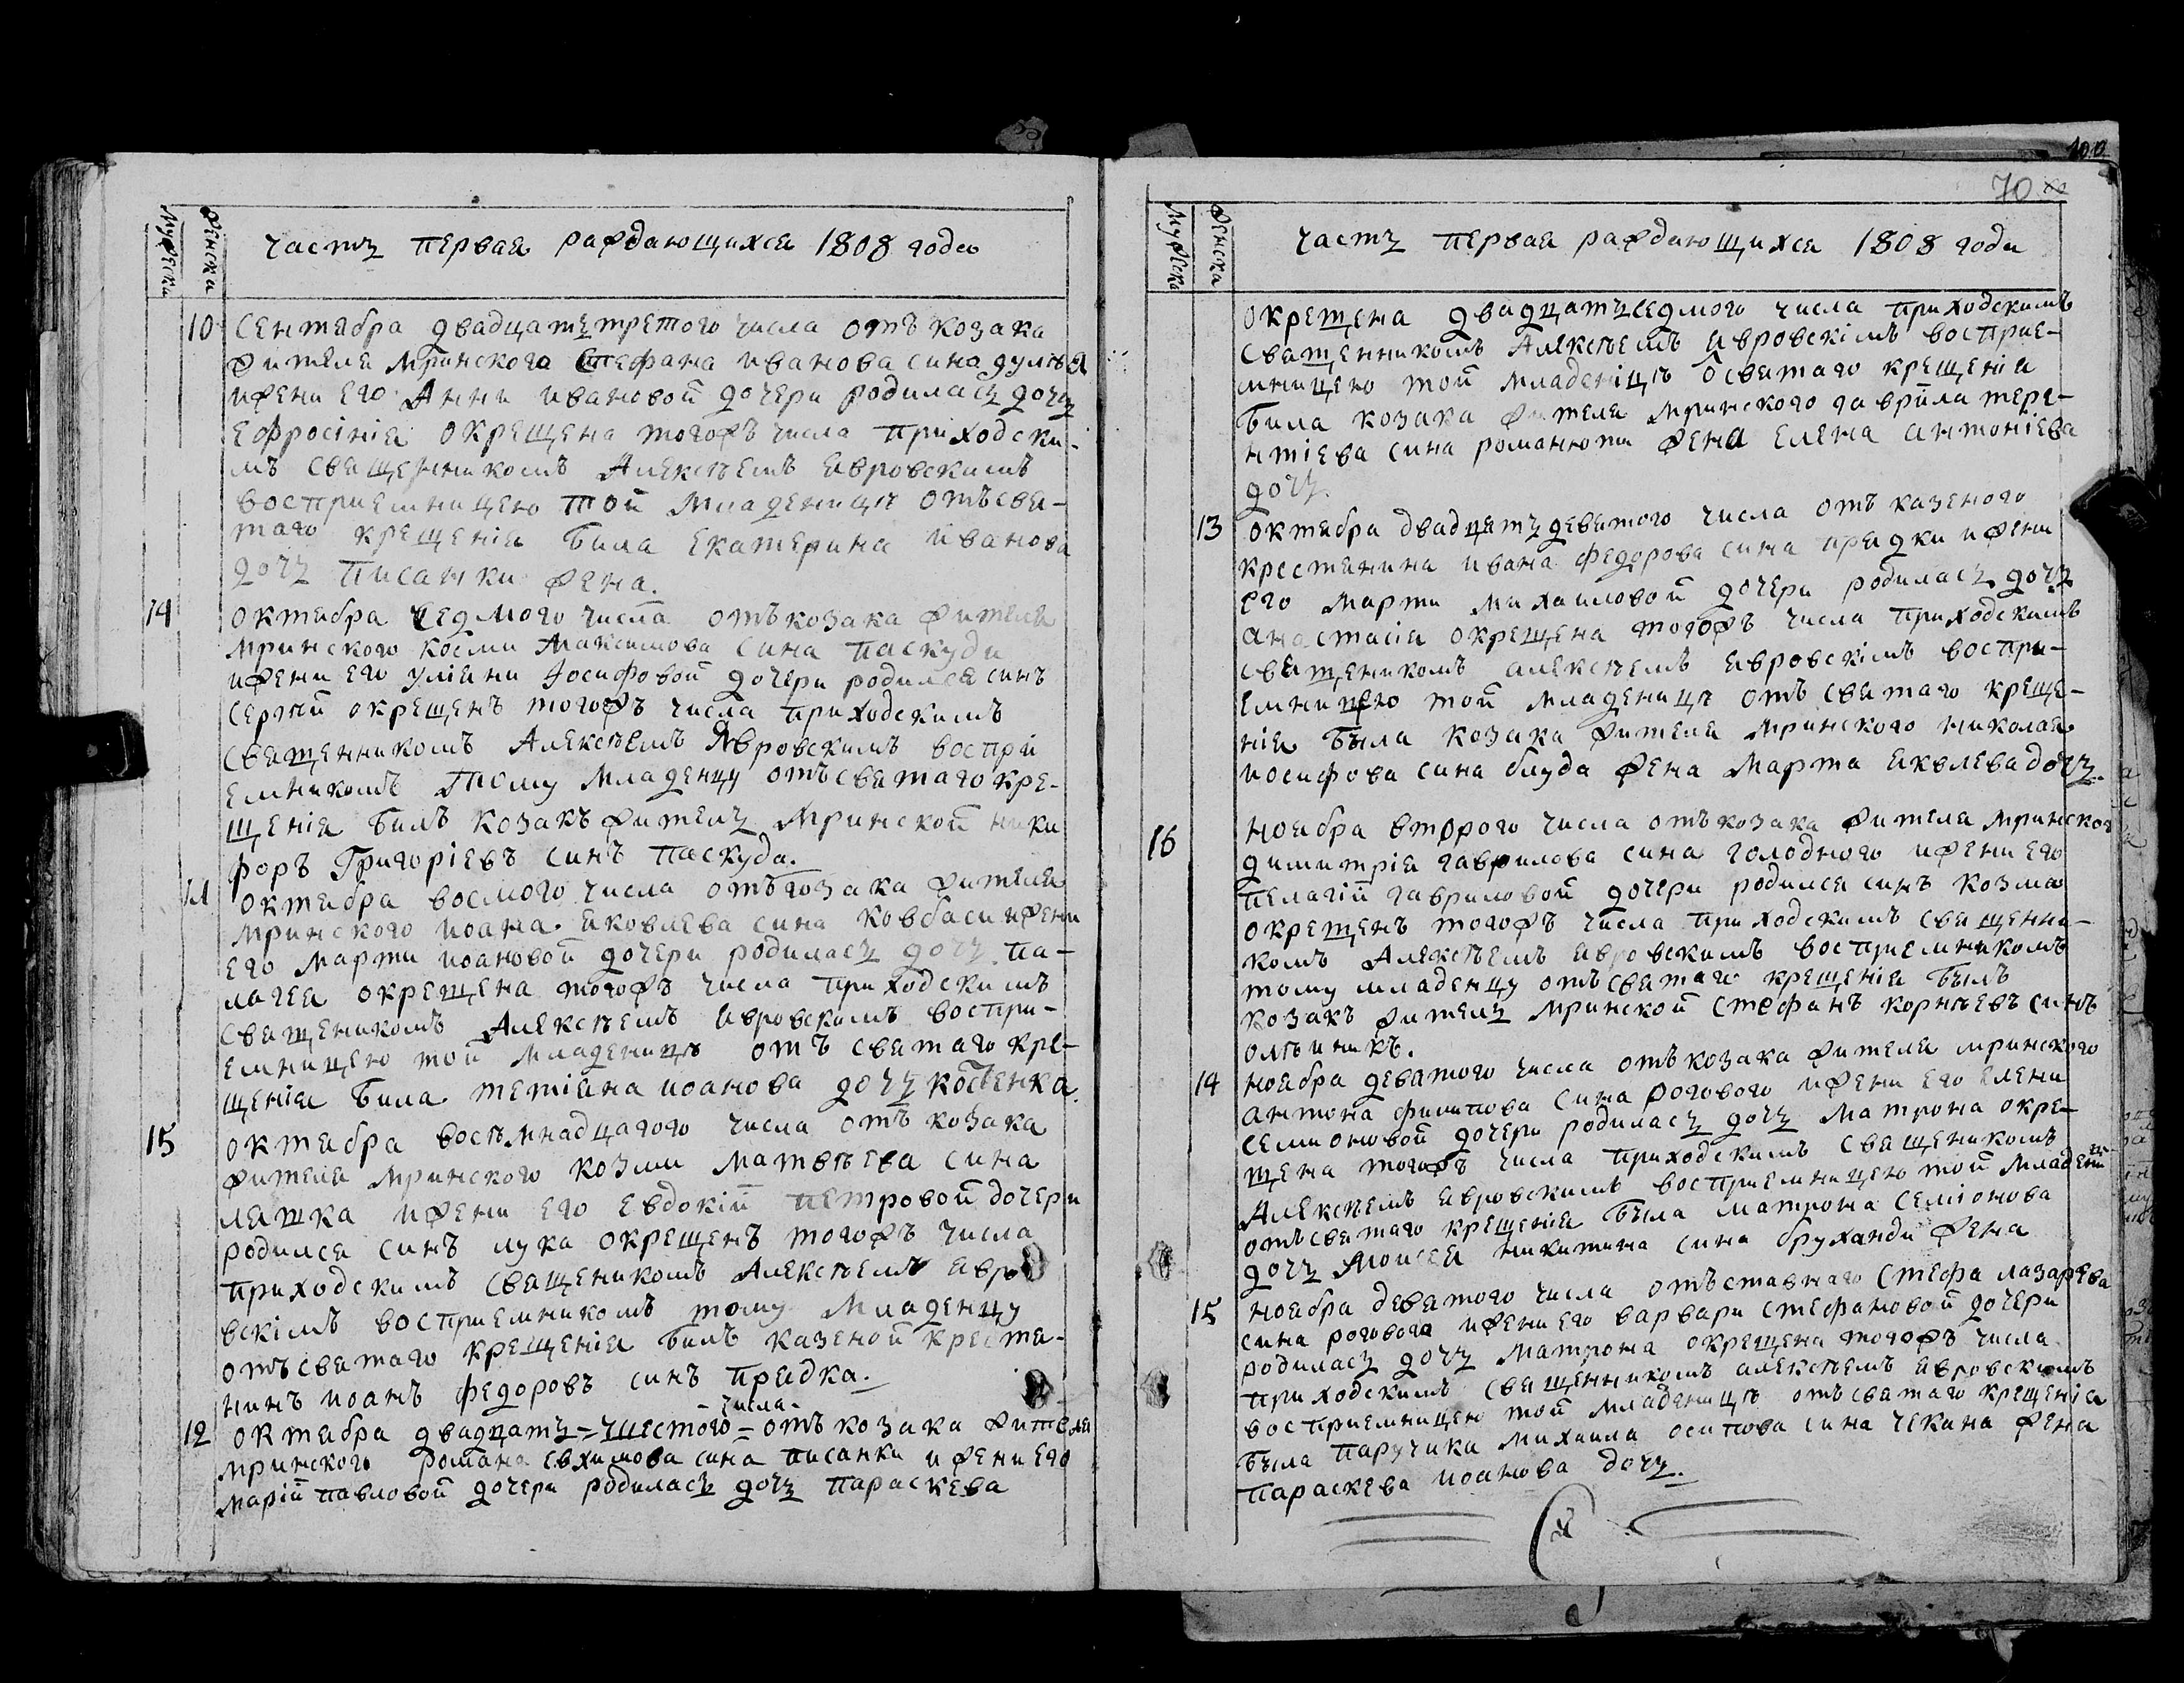 100
70
Мужеска
Женска
частъ первая раждающихся 1808 года
10 Сентября двадцатъ третого числа отъ козака
жителя Мринского Стефана Иванова сина дулѣя
и жени его Анни Ивановой дочери родиласъ дочъ
Ефросінія окрещена тогожъ числа приходски-
мъ священникомъ Алексѣемъ Явровскимъ
восприемницею той младеницѣ отъ свя-
таго крещенія била Екатерина Иванова
дочъ писанки жена.
14 октября седмого числа отъ козака жителя
Мринского Косми Максимова сина паскуди
и жени его Уліяни Іосифовой дочери родился синъ
Сергѣй окрещенъ тогожъ числа приходскимъ
священникомъ Алексѣемъ Явровскимъ воспрі
емникомъ тому младенцу отъ святаго кре-
щенія билъ козакъ жителъ Мринской Ники
форъ Григоріевъ синъ паскуда.
11 октября восмого числа отъ козака жителя
Мринского Иоана Яковлева сина ковбаси и жени
его Марти Иоановой дочери родиласъ дочъ Па-
лагея окрещена тогожъ числа приходскимъ
священикомъ Алексѣемъ Явровскимъ воспри-
емницею той младеницѣ отъ святаго кре-
щенія била Тетіяна Иоанова дочъ костенка
15 октября восѣмнадцатого числа отъ козака
жителя Мринского Козми Матвѣева сина
ляшка и жени его Евдокій Петровой дочери
родился синъ Лука окрещенъ тогожъ числа
приходскимъ священикомъ Алексѣемъ Явро
вскімъ восприемникомъ тому младенцу
отъ святаго крещенія билъ казеной крестя-
нинъ Иоанъ Федоровъ синъ прядка.
числа
12 октября двадцатъ=шестого=отъ козака жителя
Мринского Романа Евхимова сина писанки и жени его
Марій Павловой дочери родиласъ дочъ Параскева
Мужеска
Женска
частъ первая раждающихся 1808 года
окрещена двадцатъ седмого числа приходскимъ
священникомъ Алексѣемъ Явровскімъ восприе-
мницею той младеніцѣ ѿ святаго крещенія
била козака жителя Мринского Гаврила Тере-
нтіева сина романюти жена Елена Антоніева
дочъ.
13 октября двадцатъ девятого числа отъ казеного
крестянина Ивана Федорова сина прядки и жени
его Марти Михаиловой дочери родиласъ дочъ
Анастасія окрещена тогожъ числа приходскимъ
священикомъ Алексѣемъ Явровскімъ воспри-
емницею той младеницѣ отъ святаго креще-
нія была козака жителя Мринского Николая
Иосифова сина блуда жена Марта Яковлева дочъ.
16 ноября второго числа отъ козака жителя Мринского
Димитрія Гаврилова сина голодного и жени его
Пелагій Гавриловой дочери родился синъ Козма
окрещенъ тогожъ числа приходскимъ священни-
комъ Алексѣемъ Явровскимъ восприемникомъ
тому младенцу отъ святаго крещенія былъ
козакъ жителъ Мринской Стефанъ Корнѣевъ синъ
олѣиникъ.
14 ноября девятого числа отъ козака жителя Мринского
Антона Филипова сина рогового и жени его Елени
Семионовой дочери родиласъ дочъ Матрона окре-
щена тогожъ числа приходскимъ священикомъ
Алексѣемъ Явровскимъ восприемницею той младени
отъ святаго крещенія была Матрона Семіонова
дочъ Моисея Никитина сина бруханди жена
15 ноября девятого числа отъ ставнаго Стефа Лазарева
сина рогового и жени его Варвари Стефановой дочери
родиласъ дочъ Матрона окрещена тогожъ числа
приходскимъ священникомъ Алексѣемъ Явровскимъ
восприемницею той младеницѣ отъ святаго крещенія
была паручика Михаила Осипова сина чекана жена
Параскева Иоанова дочъ.